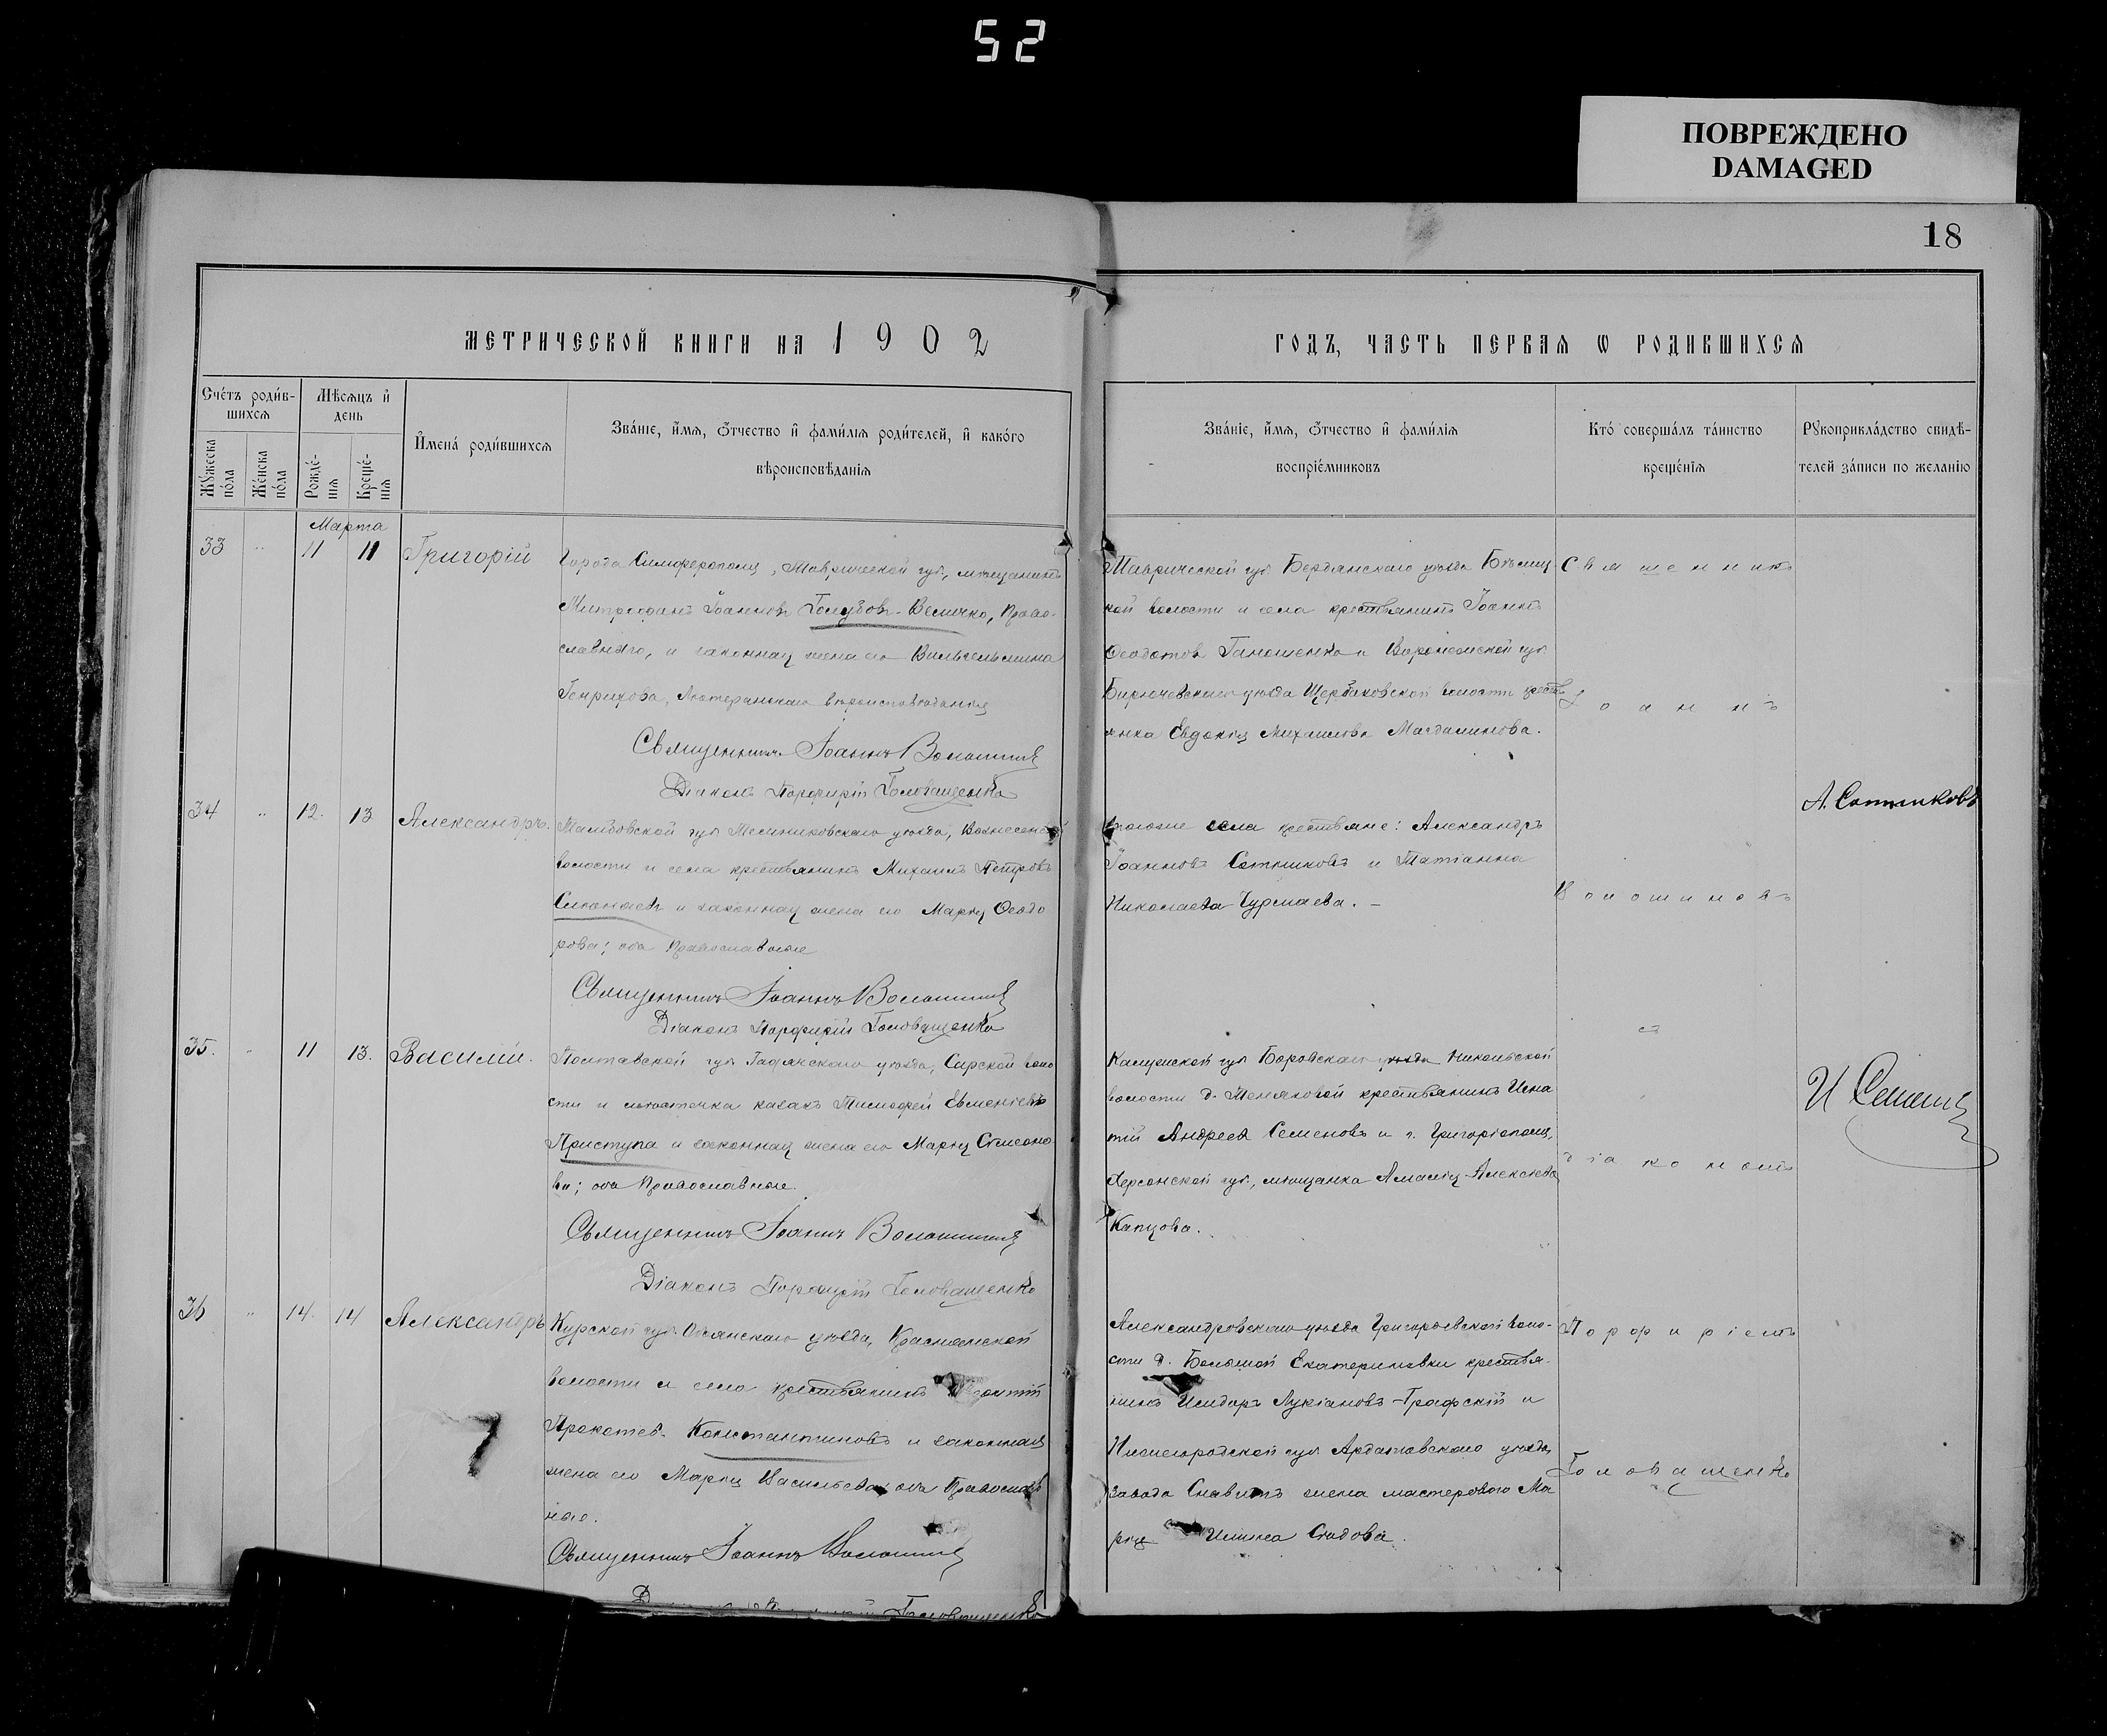 52
ПОВРЕЖДЕНО
DAMAGED
18
МЕТРИЧЕСКОЙ КНИГИ НА 1902
ГОДЪ, ЧАСТЬ ПЕРВАЯ Ѡ РОДИВШИХСЯ
Счётъ родив-
шихся
Мѣсяцъ и
день
Мужеска
пола
Женска
пола
Рожде-
нія
Креще-
нія
Имена родившихся
Званіе, имя, отчество и фамилія родителей, и какого
вѣроисповѣданія
Званіе, имя, отчество и фамилія
воспріемниковъ
Кто совершалъ таинство
крещенія
Рукоприкладство свидѣ-
телей записи по желанію
Марта
33 " 11 11 Григорій
Города Симферополя, Таврической губ., мѣщанинъ
Митрофанъ Іоанновъ Голубов-Величко, Право-
славнаго, и законная жена его Вильгельмина
Генрихова, Лютеранскаго вѣроисповѣданія
Священникъ Іоаннъ Волошинов
Діаконъ Порфирій Головащенко
Таврической губ. Бердянскаго уѣзда
кой волости и села крестьянинъ Іоаннъ
Ѳеодотов и Воронежской губ.
Бирюченскаго уѣзда Щербаковской волости кресть
янка Евдокія Михаилова Магдалинова.
34 " 12. 13 Александръ.
Тамбовской губ. Темниковскаго уѣзда, Вознесенской
волости и села крестьянинъ Михаилъ Петровъ
и законная жена его Марія Ѳеодо
рова; оба Православные
Священникъ Іоаннъ Волошинов
Діаконъ Порфирій Головащенко
села крестьяне: Александръ
Іоанновъ Сотниковъ и Татіанна
Николаева Чурмаева. –
А. Сотниковъ
35. " 11 13. Василій.
Полтавской губ. Гадячскаго уѣзда, Сарской воло
сти и мѣстечка казакъ Тимофей Евменіевъ
Приступа и законная жена его Марія Симеоно
ва; оба Православные.
Священникъ Іоаннъ Волошинов
Діаконъ Порфирій Головащенко
Калужской губ. Боровскаго уѣзда Никольской
волости д. крестьянинъ Игна
тій Андреев Семеновъ и г. Григоріополя,
Херсонской губ., мѣщанка Алексѣева
Капцова.
И Семенов
36 " 14. 14 Александръ
Курской губ. Обоянскаго уѣзда,
волости и села крестьянинъ Леонтій
Прокопіев. Константиновъ и законная
жена его Марія Васильева; оба Православ
ные.
Священникъ Іоаннъ Волошинов
Головащенко
Александровскаго уѣзда Григорьевской воло-
сти д. Большой Екатериновки крестья-
нинъ Исидоръ Лукіановъ Графскій и
Нижегородской губ. Ардатовскаго уѣзда,
завода жена мастерового Ма
рія Сѣдова.
Священникъ
Іоаннъ
Волошиновъ
съ
діакономъ
Порфиріемъ
Головащенко
7